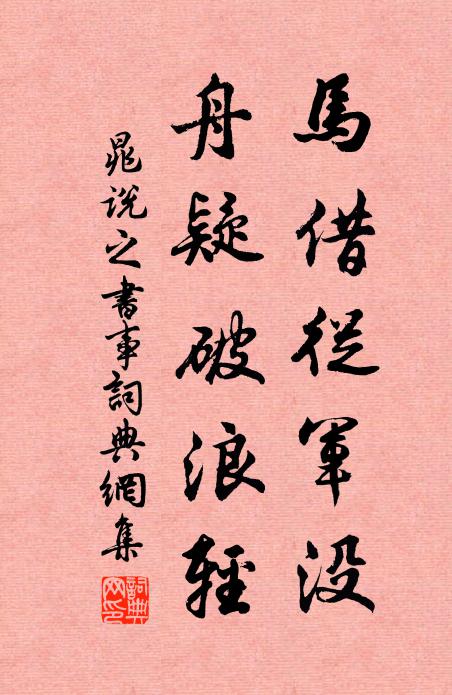 馬借從軍没
舟疑破浪輕
晁説之書事詞典網集
詞典網印